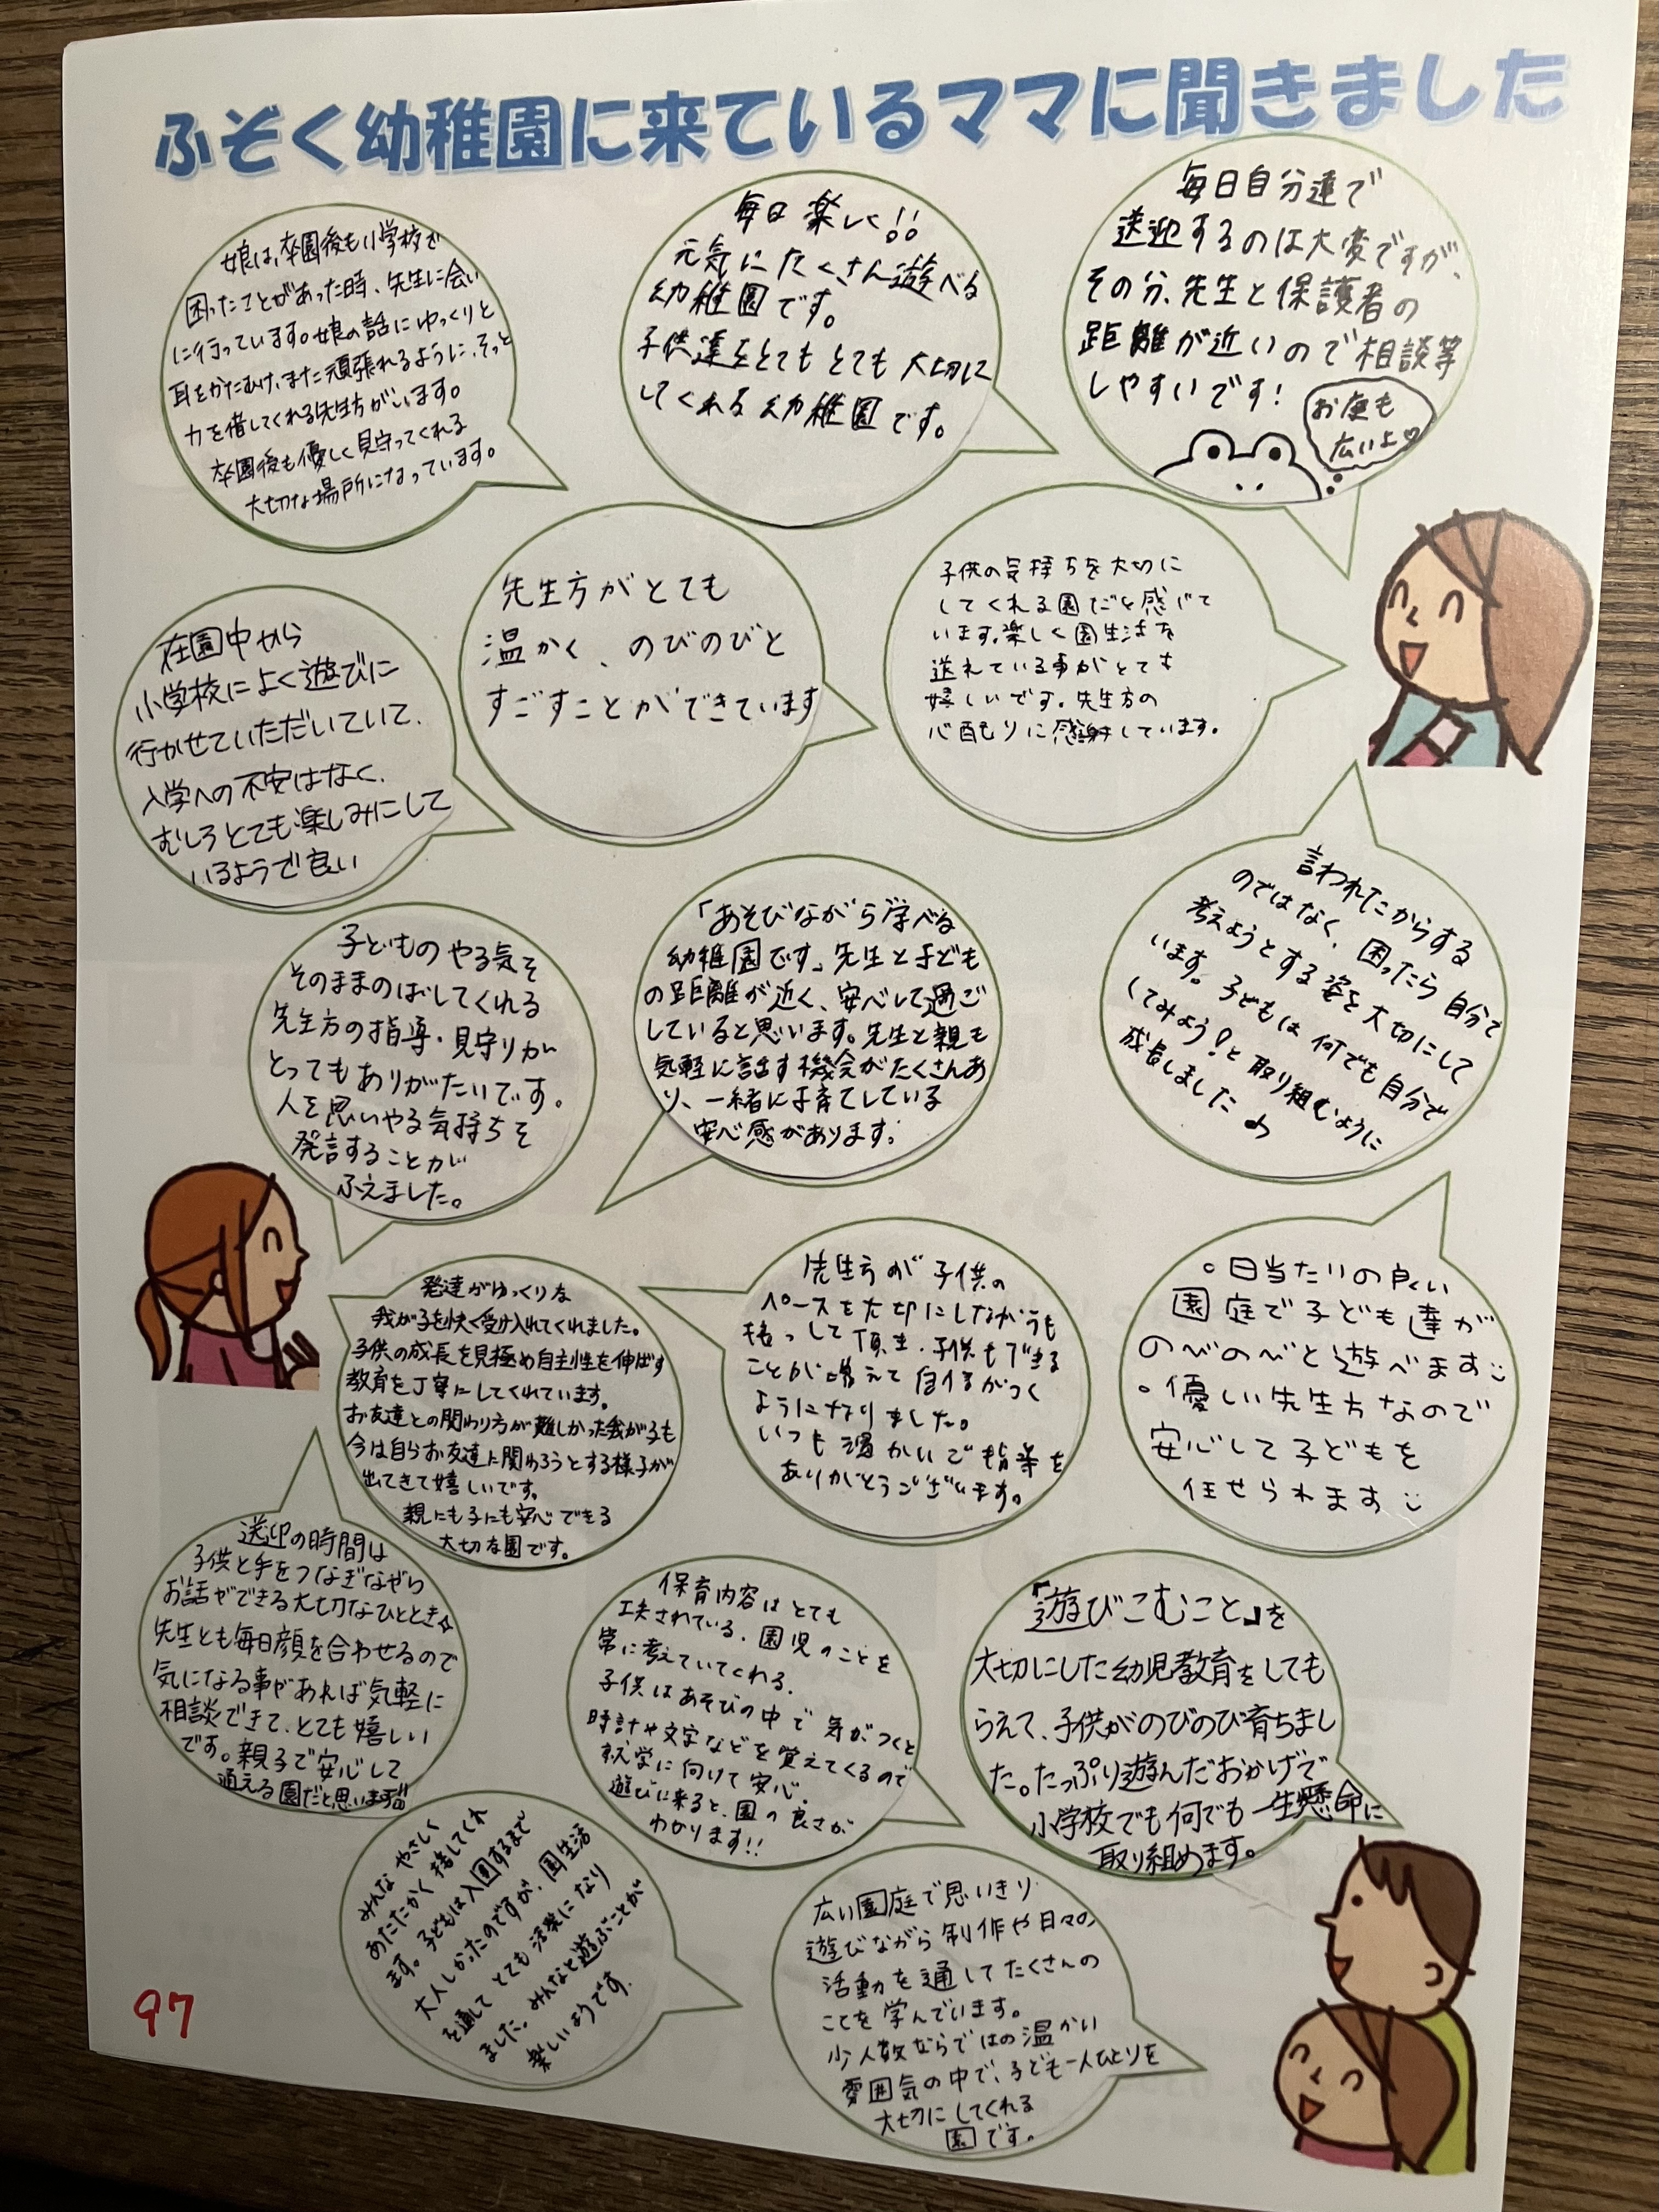 ふぞく幼稚園に来ているママに聞きました
娘は、卒園後も小学校で
困ったことがあった時、先生に会い
に行っています。娘の話にゆっくりと
耳をかたむけ、また頑張れるように、そっと
力を借してくれる先生方がいます。
卒園後も優しく見守ってくれる
大切な場所になっています。
毎日 楽しく!!
元気にたくさん遊べる
幼稚園です。
子供達をとてもとても大切に
してくれる幼稚園です。
毎日自分達で
送迎するのは大変ですが、
その分、先生と保護者の
距離が近いので相談等
しやすいです!
お庭も
広いよ♡
在園中から
小学校によく遊びに
行かせていただいていて、
入学への不安はなく、
むしろとても楽しみにして
いるようで良い
先生方がとても
温かく、のびのびと
すごすことができています
子供の気持ちを大切に
してくれる園だと感じて
います。楽しく園生活を
送れている事がとても
嬉しいです。先生方の
心配りに感謝しています。
子どものやる気を
そのままのばしてくれる
先生方の指導・見守りが
とってもありがたいです。
人を思いやる気持ちを
発言することが
ふえました。
「あそびながら学べる
幼稚園です」先生と子ども
の距離が近く、安心して過ご
していると思います。先生と親も
気軽に話す機会がたくさんあ
り、一緒に子育てしている
安心感があります。
言われたからする
のではなく、困ったら自分で
考えようとする姿を大切にして
います。子どもは何でも自分で
してみよう!と取り組むように
成長しました
発達がゆっくりな
我が子を快く受け入れてくれました。
子供の成長を見極め自主性を伸ばす
教育を丁寧にしてくれています。
お友達との関わり方が難しかった我が子も
今は自らお友達に関わろうとする様子が
出てきて嬉しいです。
親にも子にも安心できる
大切な園です。
先生方が子供の
ペースを大切にしながらも
接っして頂き、子供もできる
ことが増えて自信がつく
ようになりました。
いつも温かいご指導を
ありがとうございます。
・日当たりの良い
園庭で子ども達が
のびのびと遊べます
・優しい先生方なので
安心して子どもを
任せられます
送迎の時間は
子供と手をつなぎながら
お話ができる大切なひととき☆
先生とも毎日顔を合わせるので
気になる事があれば気軽に
相談できて、とても嬉しい
です。親子で安心して
通える園だと思います!!!
保育内容はとても
工夫されている、園児のことを
常に考えていてくれる、
子供はあそびの中で気がつくと
時計や文字などを覚えてくるので
就学に向けて安心。
遊びに来ると、園の良さが
わかります!!
「遊びこむこと」を
大切にした幼児教育をしても
らえて、子供がのびのび育ちまし
た。たっぷり遊んだおかげで
小学校でも何でも一生懸命に
取り組めます。
みんなやさしく
あたたかく接してくれ
ます。子どもは入園するまで
大人しかったのですが、園生活
を通してとても活発になり
ました。みんなと遊ぶことが
楽しいようです。
広い園庭で思いきり
遊びながら制作や日々の
活動を通してたくさんの
ことを学んでいます。
少人数ならではの温かい
雰囲気の中で、子ども一人ひとりを
大切にしてくれる
園です。
97